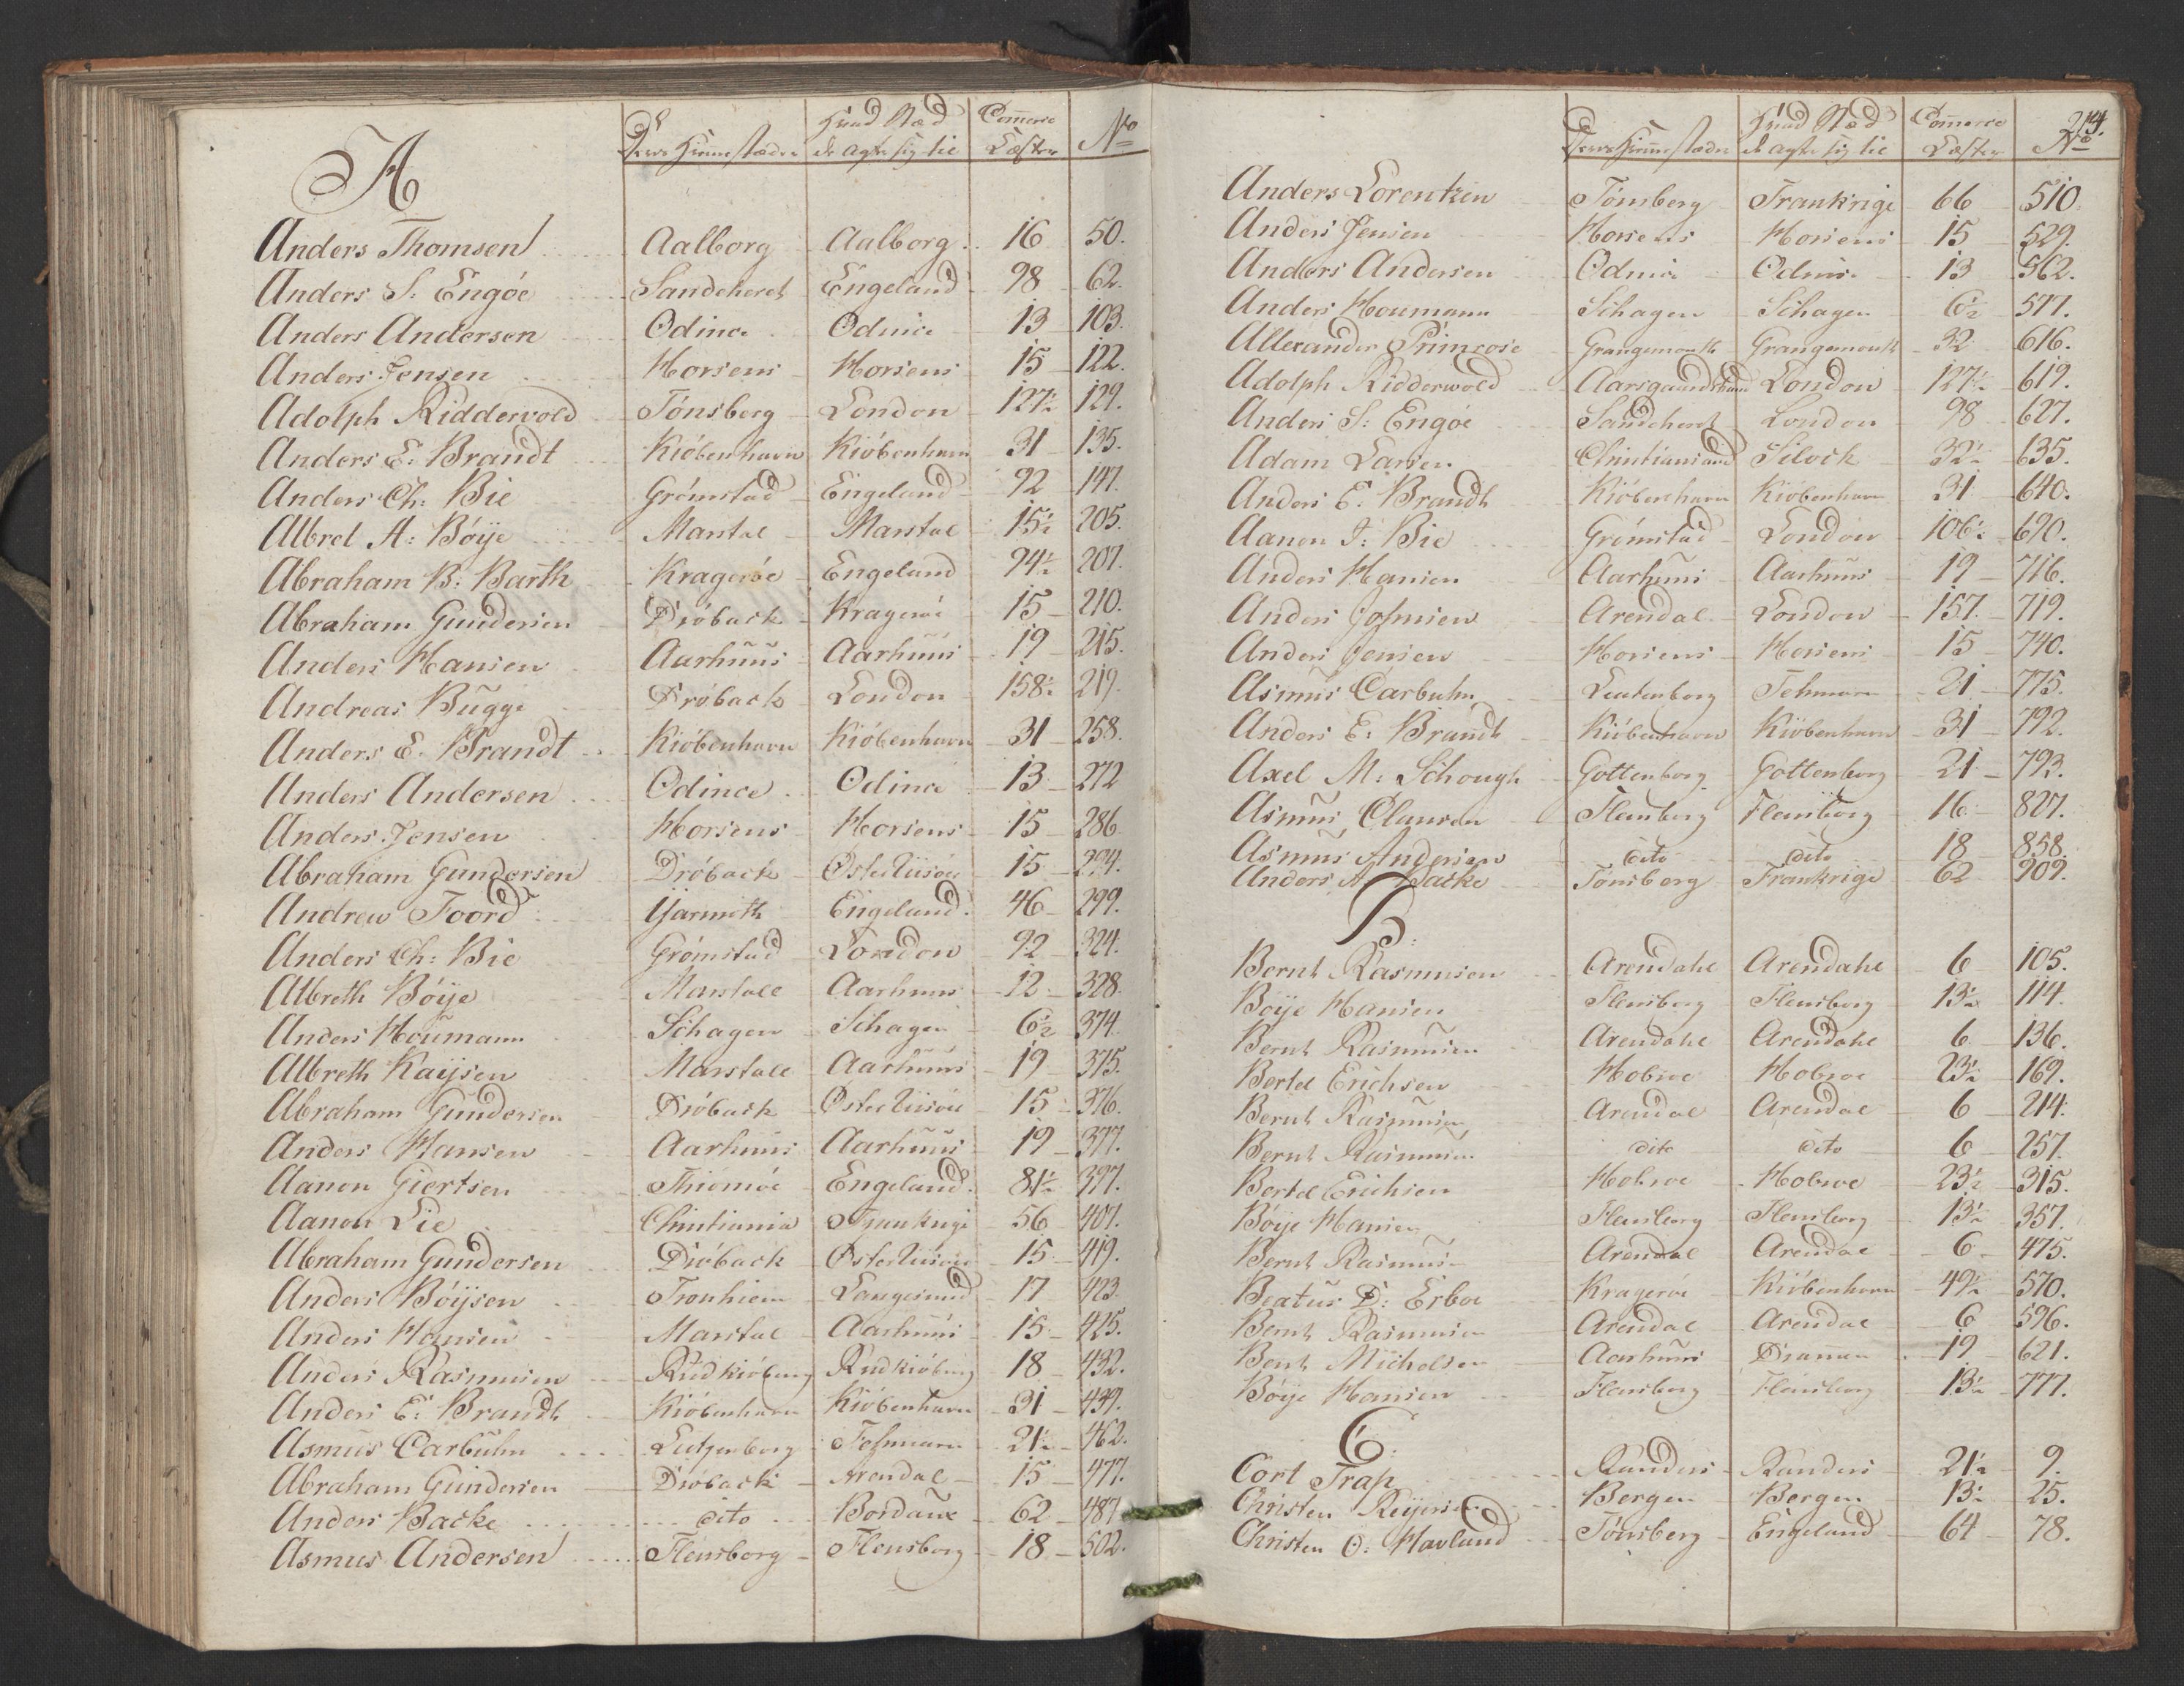 A
Deres Hiemstæder Hvad Stæd de agter sig til Commerce Læster No
Anders Thomsen Aalborg Aalborg 16 50.
Anders S: Engöe Sandeheret Engeland 98 62.
Anders Andersen Odince Odince 13 103.
Anders Jensen Horsens Horsens 15 122.
Adolph Riddervold Tönsberg London 127½ 129.
Anders E: Brandt Kiöbenhavn Kiöbenhavn 31 135.
Anders Ch: Bie Grömstad Engeland 92 147.
Albret A: Böÿe Marstal Marstal 15½ 205.
Abraham B: Barth Krageröe Engeland 94½ 207.
Abraham Gundersen Dröback Krageröe 15 210.
Anders Hansen Aarhuus Aarhuus 19 215.
Andreas Bugge Dröback London 158½ 219.
Anders E. Brandt Kiöbenhavn Kiöbenhavn 31 258.
Anders Andersen Odince Odince 13 272
Anders Jensen Horsens Horsens 15 286
Abraham Gundersen Dröback Österriisöer 15 294.
Andrew Foord Yarmoth Engeland 46 299.
Anders Ch: Bie Grömstad London 92 324.
Albreth Böÿe Marstall Aarhuus 12 328.
Anders Houmann Schagen Schagen 6½ 374.
Albreth Kaÿsen Marstall Aarhuus 19 375.
Abraham Gundersen Dröback Österriisöer 15 376.
Anders Hansen Aarhuus Aarhuus 19 377.
Aanon Giertsen Thiömöe Engeland 81½ 397.
Aanon Lie Christiania Frankrige 56 407.
Abraham Gundersen Dröback Österriisöer 15 419.
Anders Böÿsen Tronhiem Langesund 17 423.
Anders Hansen Marstal Aarhuus 15 425.
Anders Rasmusen Rudkiöbing Rudkiöbing 18 432.
Anders E: Brandt Kiöbenhavn Kiöbenhavn 31 439.
Asmus Carbuhn Lutgenborg Fehmarn 21½ 462.
Abraham Gundersen Dröback Arendal 15 477.
Anders Backe dito Bordaux 62 487
Asmus Andersen Flensborg Flensborg 18 502.
214.
Deres Hiemstæder Hvad Stæd de agter sig til Commerce Læster No
Anders Lorentzen Tönsberg Frankrige 66 510
Anders Jensen Horsens Horsens 15 529.
Anders Andersen Odince Odince 13 562.
Anders Houmann Schagen Schagen 6½ 577.
Allexander Primrose Grangemouth Grangemouth 32 616.
Adolph Ridderwold Aarsgaardstrand London 127½ 619.
Anders S: Engöe Sandeheret London 98 627.
Adam Larsen Christiansand Silvick 32½ 635.
Anders E: Brandt Kiöbenhavn Kiöbenhavn 31 640.
Aanon J: Bie Grömstad London 106½ 690.
Anders Hansen Aarhuus Aarhuus 19 716.
Anders Johnsen Arendal London 157 719.
Anders Jensen Horsens Horsens 15 740.
Asmus Carbuhn Lutenborg Fehmarn 21 775.
Anders E: Brandt Kiöbenhavn Kiöbenhavn 31 792.
Axel M: Schough Gottenborg Gottenborg 21 793.
Asmus Clausen Flensborg Flensborg 16 827.
Asmus Andersen dito dito 18 858.
Anders A Backe Tönsberg Frankrige 62 909.
B:
Bernt Rasmusen Arendahl Arendahl 6 105.
Böÿe Hansen Flensborg Flensborg 13½ 114.
Bernt Rasmusen Arendahl Arendahl 6 136.
Bertel Erichsen Hobroe Hobroe 23½ 169.
Bernt Rasmusen Arendal Arendal 6 214.
Bernt Rasmusen dito dito 6 257.
Bertel Erichsen Hobroe Hobroe 23½ 315.
Böÿe Hansen Flensborg Flensborg 13½ 357.
Bernt Rasmusen Arendal Arendal 6 475.
Beatus D: Erboe Krageröe Kiöbenhavn 49½ 570.
Bernt Rasmusen Arendal Arendal 6 596.
Bent Michelsen Aarhuus Drammen 19 621.
Böÿe Hansen Flensborg Flensborg 13½ 777.
C.
Cort Trap Randers Randers 21½ 9.
Christen Reÿersen Bergen Bergen 13½ 25.
Christen O: Havlund Tönsberg Engeland 64 78.